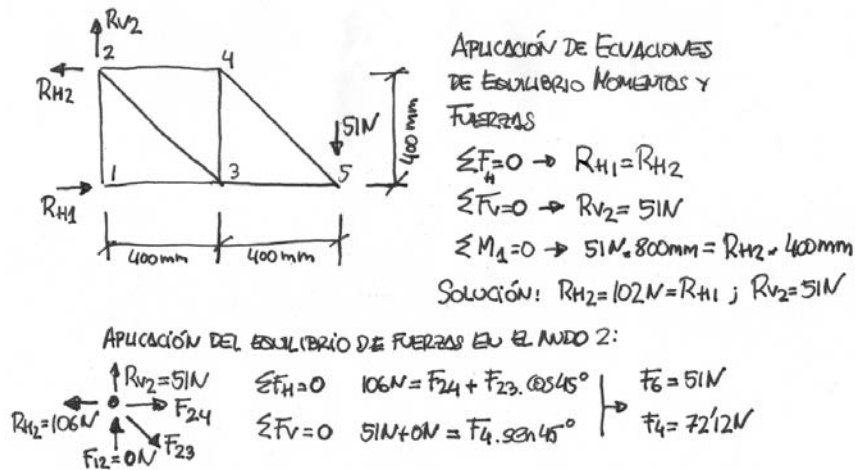 RV2
2
4
RH2
51N
400mm
1
3
5
RH1
400mm
400mm
APLICACIÓN DE ECUACIONES
DE EQUILIBRIO MOMENTOS Y
FUERZAS
ΣFH=0 → RH1=RH2
ΣFV=0 → RV2=51N
ΣM1=0 → 51N·800mm=RH2·400mm
SOLUCIÓN: RH2=102N=RH1 ; RV2=51N
APLICACIÓN DEL EQUILIBRIO DE FUERZAS EN EL NUDO 2:
RV2=51N
RH2=106N
F24
F12=0N
F23
ΣFH=0 106N=F24+F23.cos45°
ΣFV=0 51N+0N=F4.sen45°
F6=51N
F4=72'12N